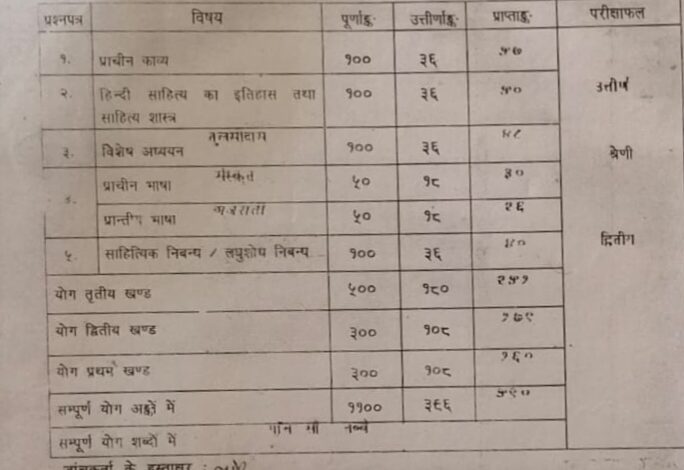 प्रश्नपत्र विषय पूर्णाङ्क उत्तीर्णाङ्क प्राप्ताङ्क परीक्षाफल
१. प्राचीन काव्य १०० ३६ ५७
२. हिन्दी साहित्य का इतिहास तथा १०० ३६ ५० उत्तीर्ण
साहित्य शास्त्र
तुलसीदास
३. विशेष अध्ययन १०० ३६ ४८ श्रेणी
प्राचीन भाषा संस्कृत ५० १८ ३०
४.
प्रान्तीय भाषा गुजराती ५० १८ २६
५. साहित्यिक निबन्ध / लघुशोध निबन्ध १०० ३६ ४० द्वितीय
योग तृतीय खण्ड ५०० १८० २५१
योग द्वितीय खण्ड ३०० १०८ १७९
योग प्रथम खण्ड ३०० १०८ १६०
सम्पूर्ण योग अङ्कों में ११०० ३९६ ५९०
सम्पूर्ण योग शब्दों में पाँच सौ नब्बे
के हस्ताक्षर :